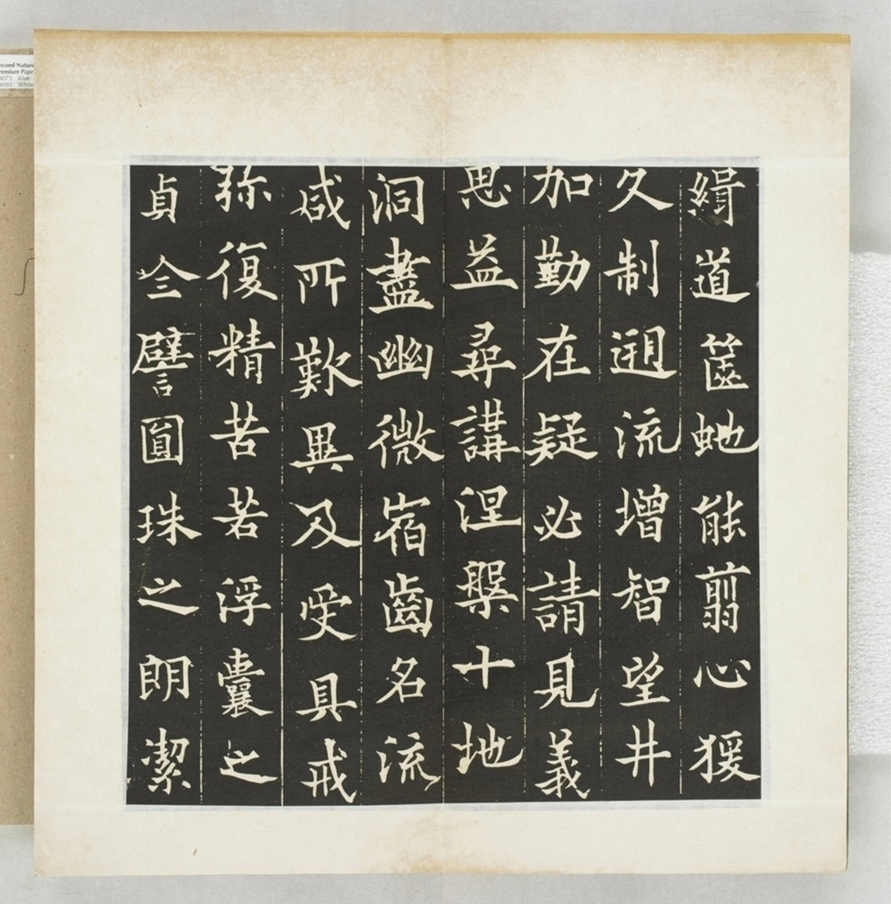 緝道篋虵能翦心猨
久制遡流增智望井
加勤在疑必請見義
思益尋講涅槃十地
洞盡幽微宿齒名流
咸所歎異及受具戒
弥復精苦若浮囊之
貞全譬圓珠之朗潔
econd Natur
remium Pape
White